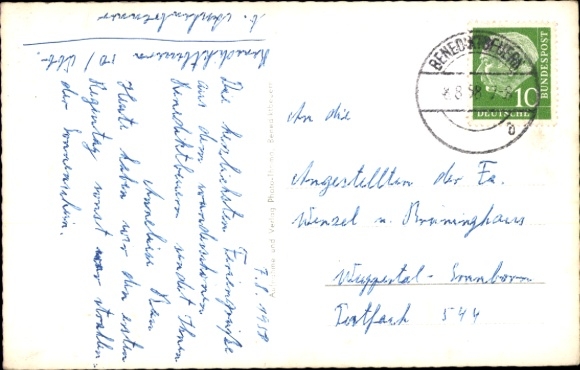 7.8.1958
Die herzlichsten Feriengrüße
aus dem wunderschönen
Benediktbeuern sendet Ihnen
Anneliese
Heute haben wir den ersten
Regentag sonst war strahlen-
der Sonnenschein.
Benediktbeuern 10 / Obb.
An die
Angestellten der Fa.
Wenzel u. Brüninghaus
Wuppertal-Sonnborn
Postfach 544
BENEDIKTBEUERN
8.8.58
a
10
DEUTSCHE
BUNDESPOST
Aufnahme und Verlag Photo